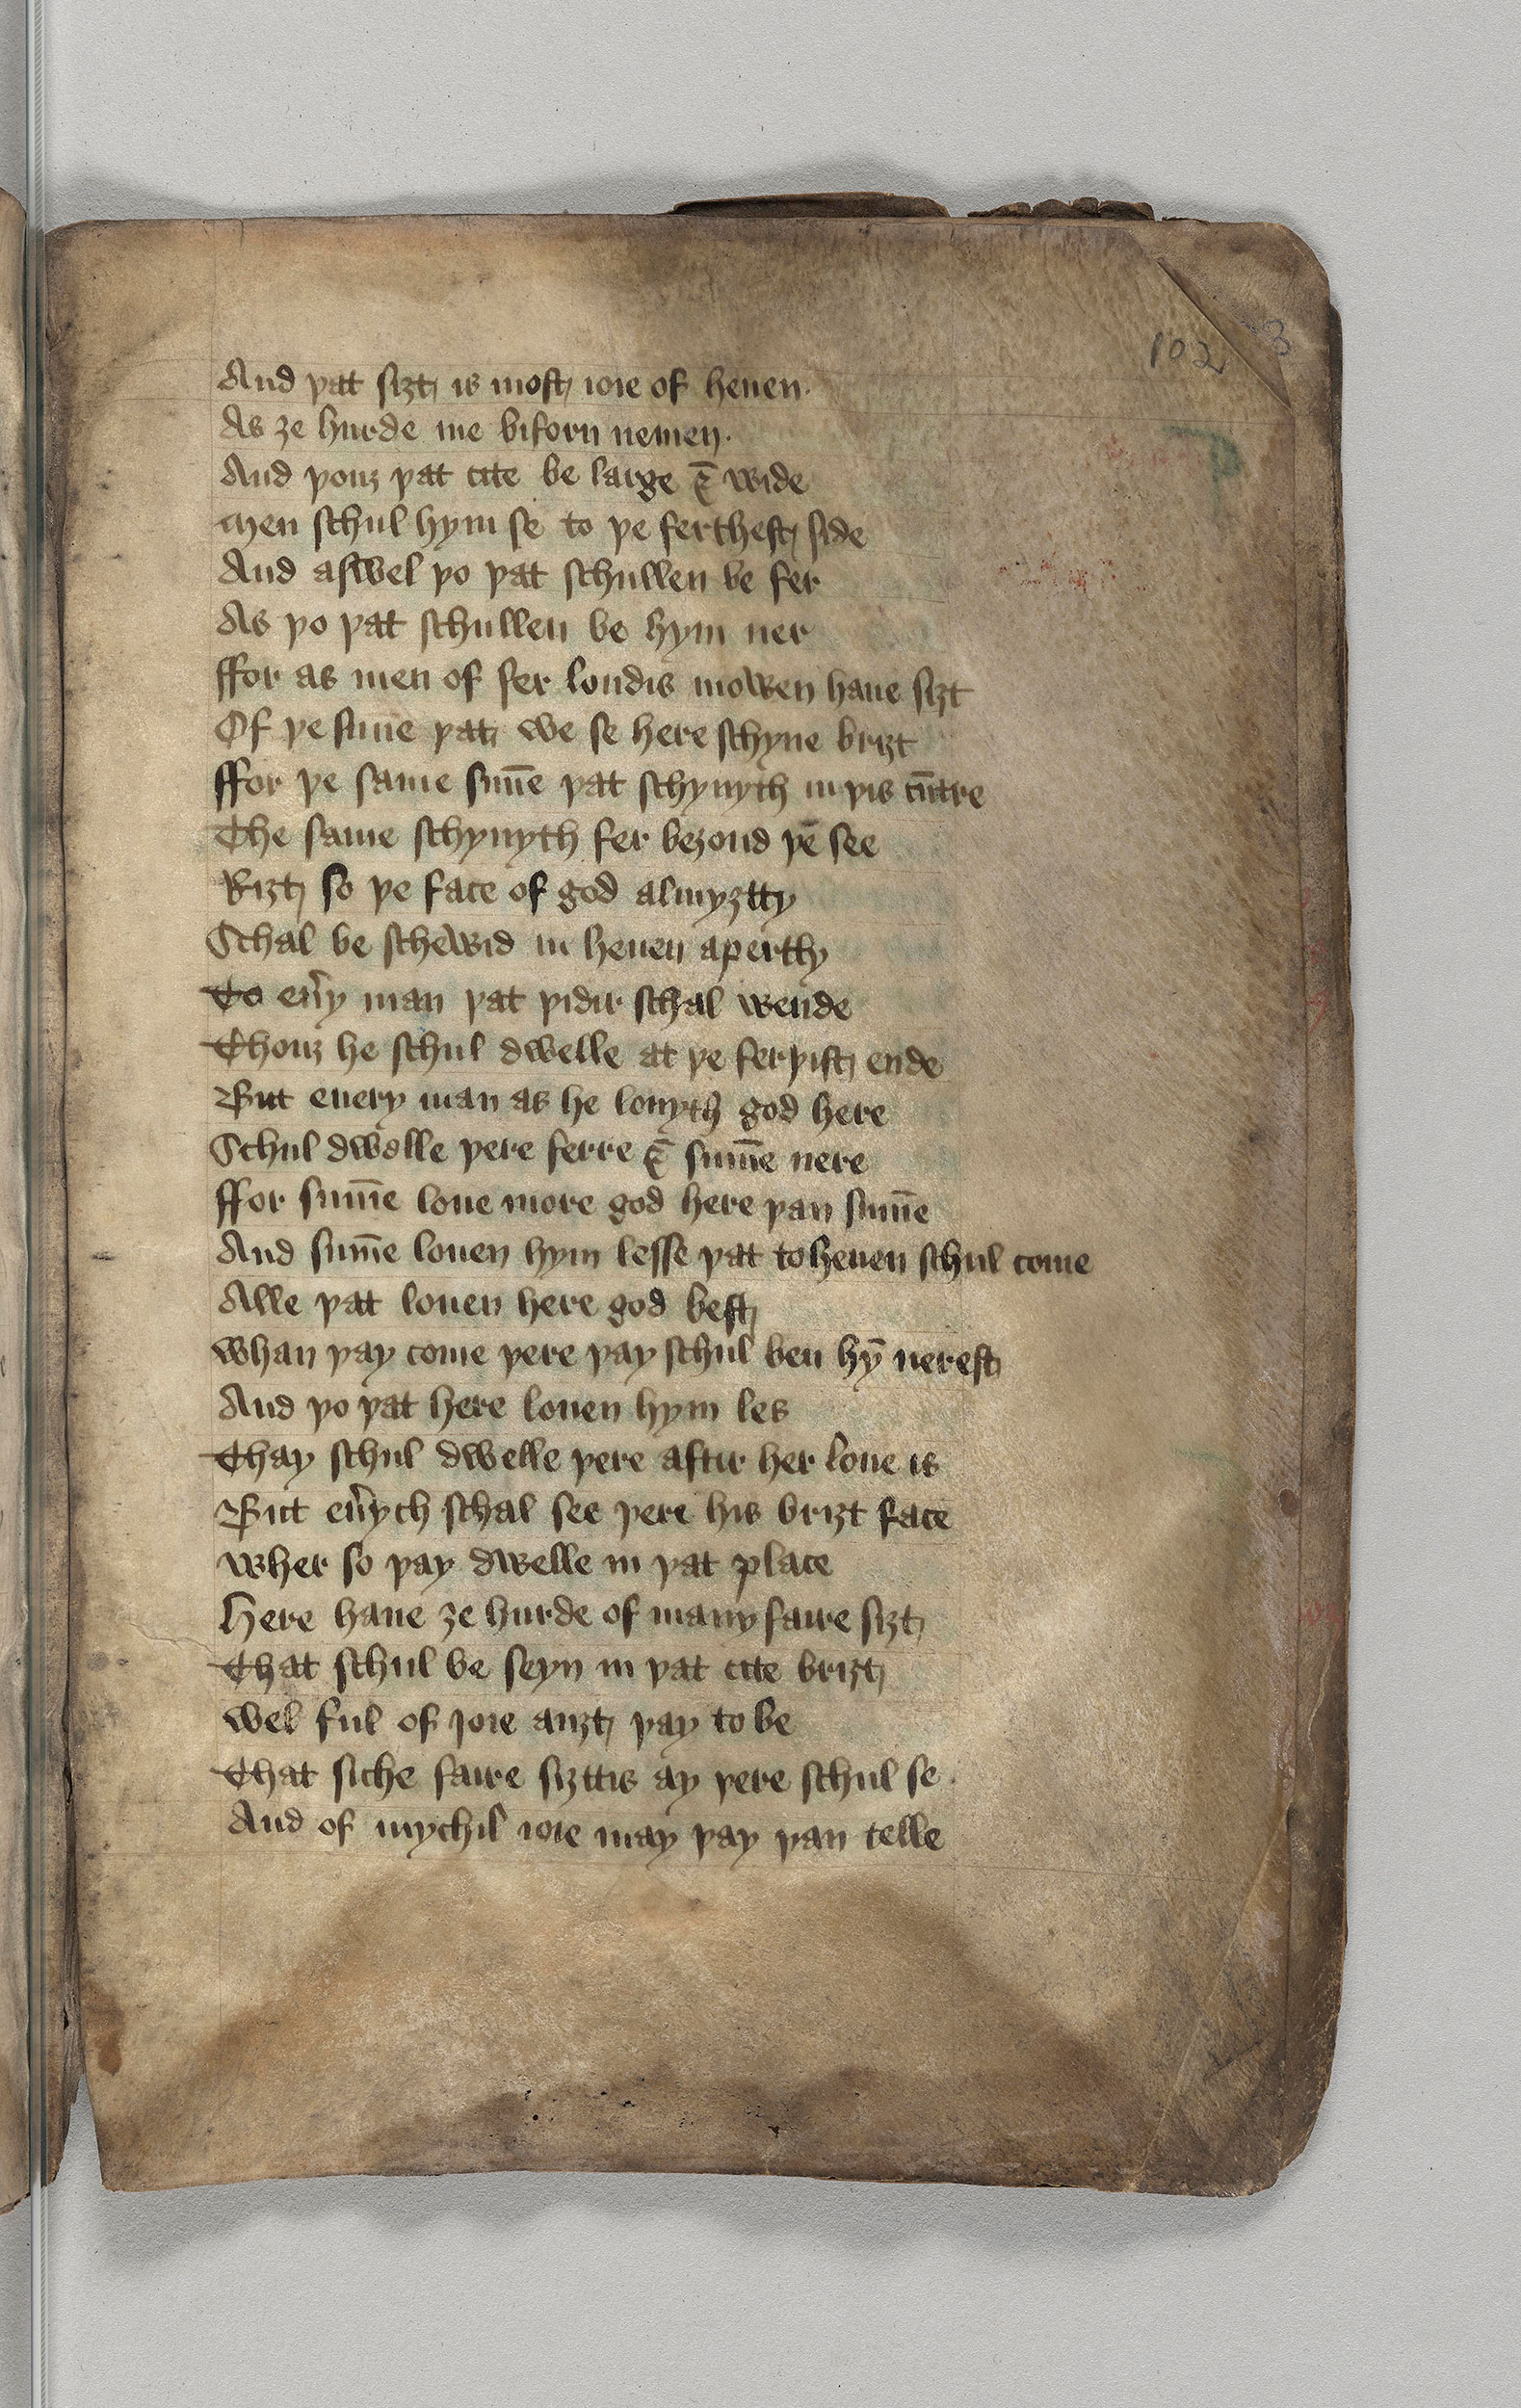 102
And þat siȝt is most ioie of heuen.
As ȝe hurde me biforn nemen.
And þouȝ þat cite be large ⁊ wide
Men schul hym se to þe ferthest side
And aswel þo þat schullen be fer
As þo þat schullen be hym ner
ffor as men of fer londis mowen haue siȝt
Of þe sūne þat we se here schyne briȝt
ffor þe same sūne þat schynyth in þis cūtre
The same schynyth fer beȝond þe see
Riȝt so þe face of god almyȝtty
Schal be schewid in heuen apertly
To eu̾y man þat þidir schal wende
Thouȝ he schul dwelle at þe ferþist ende
But euery man as he louyth god here
Schul dwelle þere ferre ⁊ sum̄e nere
ffor sum̄e loue more god here þan sum̄e
And sum̄e louen hym lesse þat to heuen schul come
Alle þat louen here god best
whan þay come þere þay schul ben hȳ nerest
And þo þat here louen hym les
Thay schul dwelle þere aftir her loue is
But eu̾ych schal see þere his briȝt face
wher so þay dwelle in þat place
Here haue ȝe hurde of many faire siȝt
That schul be seyn in þat cite briȝt
wel ful of joie auȝt þay to be
That siche faire siȝttis ay þere schul se.
And of mychil ioie may þay þan telle